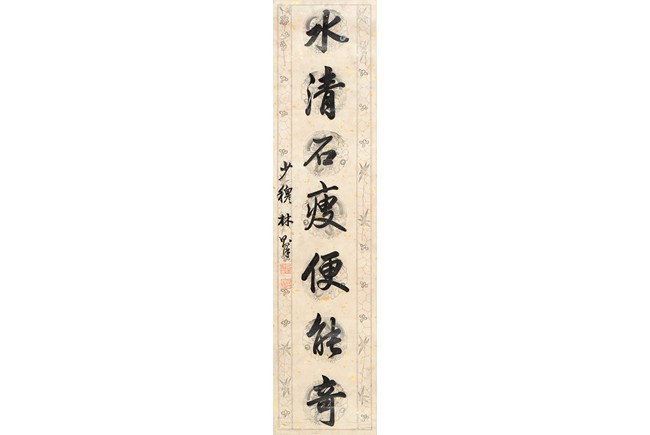 水清石瘦便能奇
少穆林則徐